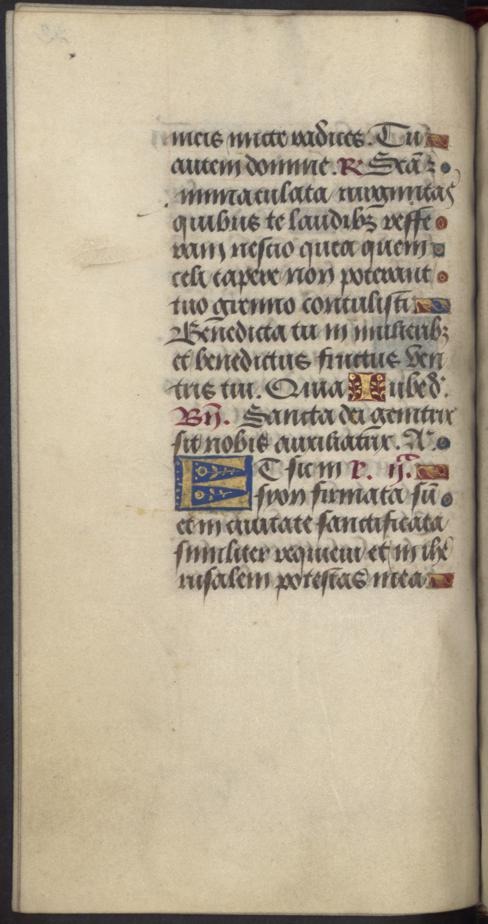 meis mitte radices. Tu
autem domine. R Scā ⁊
immaculata virginitas
quibus te laudibꝫ reffe
ram nescio quia quem
celi capere non poterant
tuo gremio contulisti
Benedicta tu in mulieribꝫ
et benedictus fructus ven
tris tui. Quia Iube d̄.
Bn̄. Sancta dei genitrix
sit nobis auxiliatrix. A.
ET sic in r. ij.ᵃ
syon firmata sū
et in ciuitate sanctificata
similiter requieui et in ihe
rusalem potestas mea